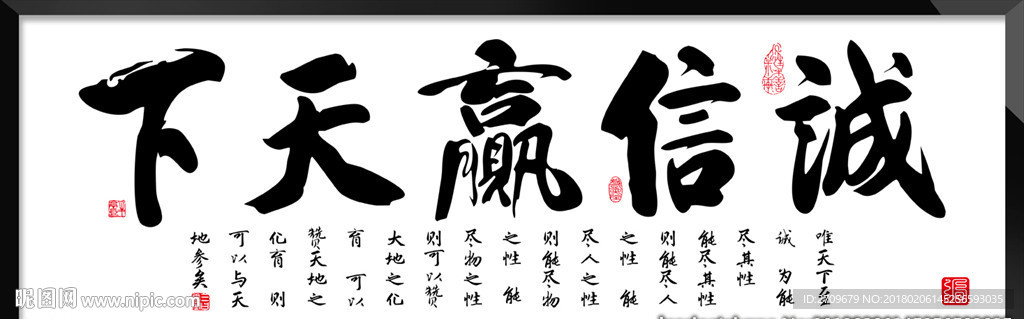 誠信赢天下
唯天下至
诚 为能
尽其性
能尽其性
则能尽人
之性 能
尽人之性
则能尽物
之性 能
尽物之性
则可以赞
大地之化
育 可以
赞天地之
化育 则
可以与天
地参矣
昵图网 www.nipic.com